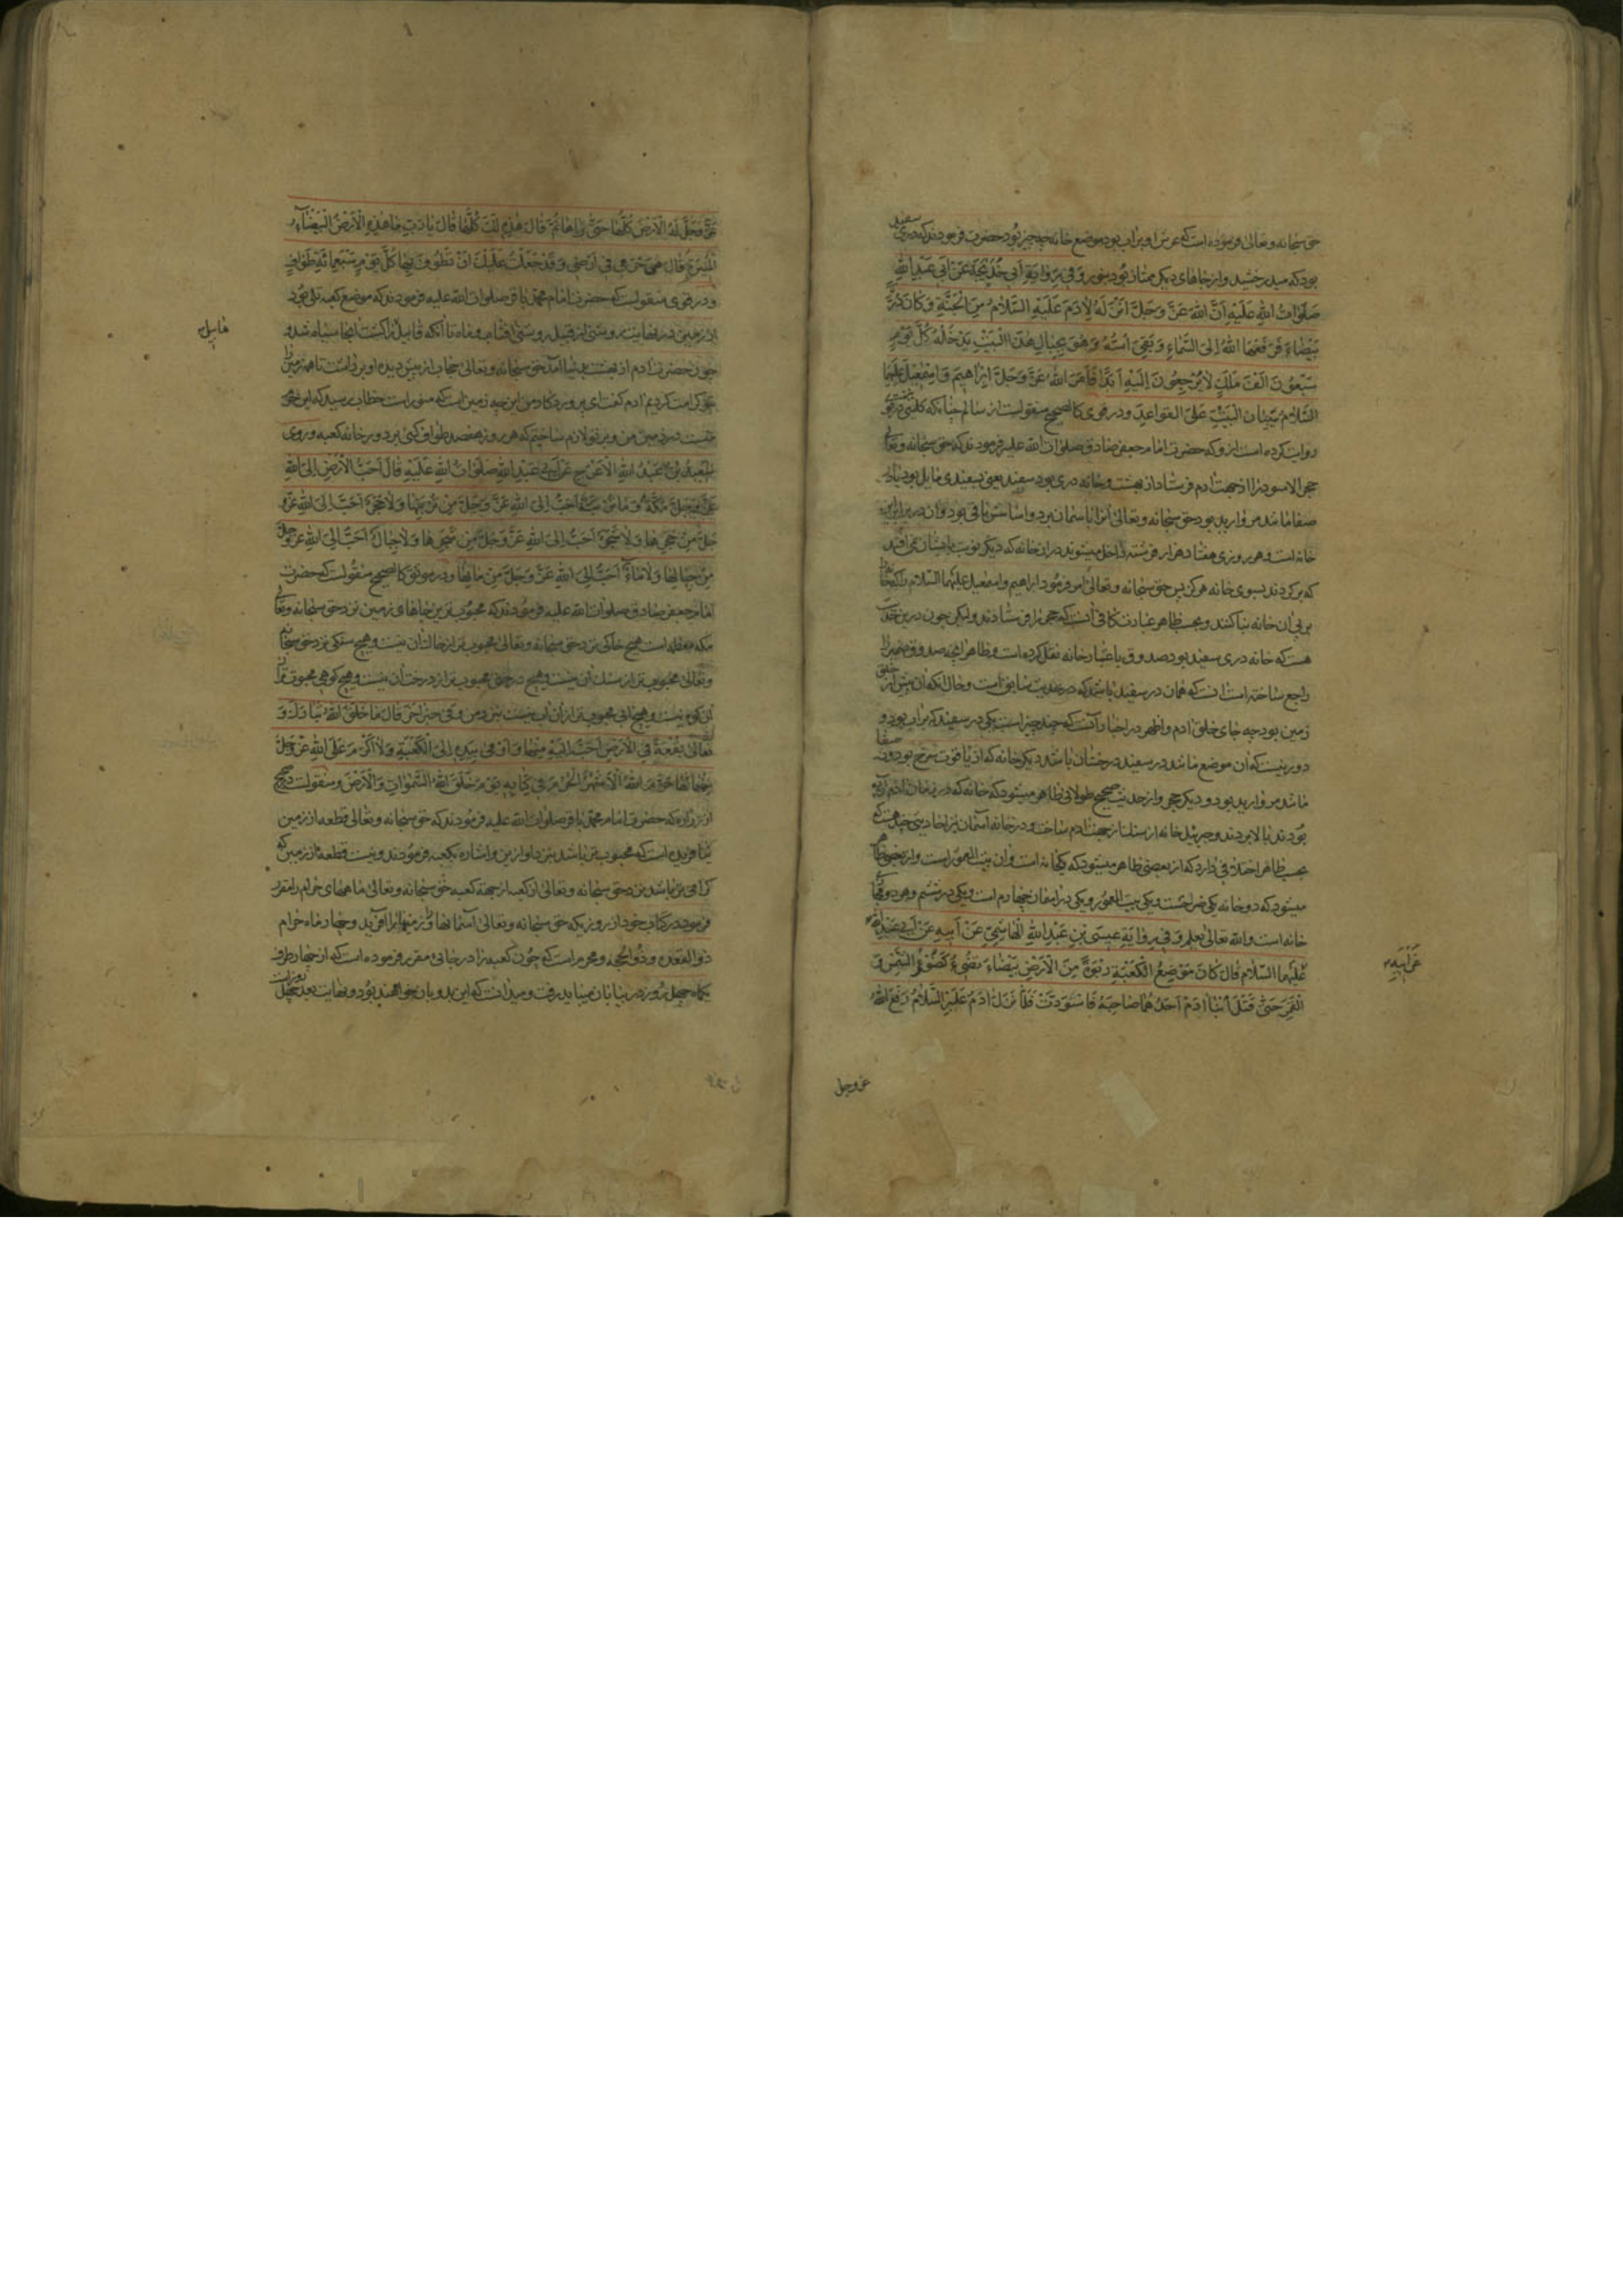 حق سبحانه و تعالی فرموده است که عرش او بر آب بود موضع خانه چه چیز بود حضرت فرمودند که دری سفید
بود که میدرخشید و از جاهای دیگر ممتاز بود بنور وَفِی رِوَایَةِ اَبِی خَدِیجَةَ عَنْ اَبِی عَبْدِ اللهِ
صَلَوَاتُ اللهِ عَلَیْهِ اَنَّ اللهَ عَزَّ وَجَلَّ اَنْزَلَهُ لِاٰدَمَ عَلَیْهِ السَّلَامُ مِنَ الْجَنَّةِ وَکَانَ دُرَّةً
بَیْضَاءَ فَرَفَعَهَا اللهُ اِلَی السَّمَاءِ وَبَقِیَ اُسُّهُ وَهُوَ بِحِیَالِ هٰذَا الْبَیْتِ یَدْخُلُهُ کُلَّ یَوْمٍ
سَبْعُونَ اَلْفَ مَلَكٍ لَا یَرْجِعُونَ اِلَیْهِ اَبَدًا فَاَمَرَ اللهُ عَزَّ وَجَلَّ اِبْرَاهِیمَ وَاِسْمٰعِیلَ عَلَیْهِمَا
السَّلَامُ بِبُنْیَانِ الْبَیْتِ عَلَی الْقَوَاعِدِ و در قوی کالصحیح منقولست از سالم چنانکه کلینی
روایت کرده است ازو که حضرت امام جعفر صادق صلوات الله علیه فرمودند که حق سبحانه و تعالی
حجر الاسود را از جهت آدم فرستاد از بهشت و خانه دری بود سفید یعنی بسفیدی مایل بود
صفا مانند مروارید بود حق سبحانه و تعالی آنرا بآسمان برد و اساسش باقی بود و آن در برابر این
خانه است و هر روزی هفتاد هزار فرشته داخل میشوند در آن خانه که دیگر نوبت بایشان نمی افتد
که برگردند بسوی خانه هرگز پس حق سبحانه و تعالی امر فرمود ابراهیم و اسمعیل علیهما السلام را که خانه را
بر پی آن خانه بنا کنند و بحسب ظاهر عبارت کافی آنست که حجر را فرستادند ولیکن چون درین حدیث
هست که خانه دری سفید بود صدوق باعتبار خانه نقل کرده است و ظاهرا آنچه صدوق ضمیر را
راجع ساخته است آنست که همان در سفید باشد که در حدیث سابق است و حال آنکه آن پیش از خلق
زمین بود چه جای خلق آدم و اظهر در اخبار آنست که چند چیز است یکی در سفید که بر آب بود و
دور نیست که آن موضع مانند در سفید درخشان باشد دیگر خانه که از یاقوت سرخ بود و در صفا
مانند مروارید بود و دیگر حجر و از حدیث صحیح طولانی ظاهر میشود که خانه که در زمان آدم
بودند بالا بردند و جبرئیل خانه از سنگ از جهت آدم ساخت و در خانه آسمان نیز احادیثی چند هست که
بحسب ظاهر اختلافی دارد که از بعضی ظاهر میشود که یکخانه است و آن بیت المعمور است و از بعضی ظاهر
میشود که دو خانه یکی ضراحست و یکی بیت المعمور و یکی در آسمان چهارم است و یکی در ششم و هر دو
خانه است والله تعالی یعلم وَفِی رِوَایَةِ عِیسَی بْنِ عَبْدِ اللهِ الْهَاشِمِیِّ عَنْ اَبِیهِ عَنْ اَبِی عَبْدِ اللهِ
عَنْ اَبِیهِ
عَلَیْهِمَا السَّلَامُ قَالَ کَانَ مَوْضِعُ الْکَعْبَةِ رَبْوَةً مِنَ الْاَرْضِ بَیْضَاءَ تُضِیءُ کَضَوْءِ الشَّمْسِ وَ
الْقَمَرِ حَتّٰی قَتَلَ ابْنَا اٰدَمَ اَحَدُهُمَا صَاحِبَهُ فَاسْوَدَّتْ فَلَمَّا نَزَلَ اٰدَمُ عَلَیْهِ السَّلَامُ رَفَعَ اللهُ
عز وجل
عَزَّ وَجَلَّ لَهُ الْاَرْضَ کُلَّهَا حَتّٰی رَاٰهَا ثُمَّ قَالَ هٰذِهِ لَكَ کُلُّهَا قَالَ یَا رَبِّ مَا هٰذِهِ الْاَرْضُ الْبَیْضَاءُ
الْمُنِیرَةُ قَالَ هِیَ حَرَمِی فِی اَرْضِی وَقَدْ جَعَلْتُ عَلَیْكَ اَنْ تَطُوفَ بِهَا کُلَّ یَوْمٍ سَبْعَمِائَةِ طَوَافٍ
و در قوی منقولست که حضرت امام محمد باقر صلوات الله علیه فرمودند که موضع کعبه تلی بود
از زمین در نهایت روشنی از قبیل روشنی آفتاب و ماه تا آنکه قابیل را کشت آنجا سیاه شد و
هابیل
چون حضرت آدم از بهشت بدنیا آمد حق سبحانه و تعالی حجاب از پیش دیده او برداشت تا همه زمین را
بتو کرامت کردیم آدم گفت ای پروردگار من این چه زمین است که منور است خطاب رسید که این حرم
منست در زمین من و بر تو لازم ساختم که هر روز هفصد طواف کنی بر دور خانه کعبه و روی
سَعِیدُ بْنُ عَبْدِ اللهِ الْاَعْرَجُ عَنْ اَبِی عَبْدِ اللهِ صَلَوَاتُ اللهِ عَلَیْهِ قَالَ اَحَبُّ الْاَرْضِ اِلَی اللهِ
عَزَّ وَجَلَّ مَکَّةُ وَمَا تُرْبَةٌ اَحَبُّ اِلَی اللهِ عَزَّ وَجَلَّ مِنْ تُرْبَتِهَا وَلَا حَجَرٌ اَحَبُّ اِلَی اللهِ عَزَّ وَ
جَلَّ مِنْ حَجَرِهَا وَلَا شَجَرٌ اَحَبُّ اِلَی اللهِ عَزَّ وَجَلَّ مِنْ شَجَرِهَا وَلَا جِبَالٌ اَحَبُّ اِلَی اللهِ عَزَّ وَجَلَّ
مِنْ جِبَالِهَا وَلَا مَاءٌ اَحَبُّ اِلَی اللهِ عَزَّ وَجَلَّ مِنْ مَائِهَا و در موثق کالصحیح منقولست که حضرت
امام جعفر صادق صلوات الله علیه فرمودند که محبوبترین جاهای زمین نزد حق سبحانه و تعالی
مکه معظمه است هیچ خاکی نزد حق سبحانه و تعالی محبوب تر از خاک آن نیست و هیچ سنگی نزد حق سبحانه
و تعالی محبوب تر از سنگ آن نیست و هیچ درختی محبوب تر از درخت آن نیست و هیچ کوهی محبوب تر از
آن کوه نیست و هیچ آبی محبوب تر از آن آب نیست وَفِی خَبَرٍ اٰخَرَ قَالَ مَا خَلَقَ اللهُ تَبَارَكَ وَ
تَعَالٰی بُقْعَةً فِی الْاَرْضِ اَحَبَّ اِلَیْهِ مِنْهَا وَاَوْمٰی بِیَدِهِ اِلَی الْکَعْبَةِ وَلَا اَکْرَمَ عَلَی اللهِ عَزَّ وَجَلَّ
مِنْهَا لَهَا حَرَّمَ اللهُ الْاَشْهُرَ الْحُرُمَ فِی کِتَابِهِ یَوْمَ خَلَقَ اللهُ السَّمٰوَاتِ وَالْاَرْضَ و منقولست در صحیح
از زراره که حضرت امام محمد باقر صلوات الله علیه فرمودند که حق سبحانه و تعالی قطعه از زمین
نیافریده است که محبوب تر باشد نزد او ازین و اشاره بکعبه فرمودند و نیست قطعه از زمین که
گرامی تر باشد نزد حق سبحانه و تعالی از کعبه از جهة کعبه حق سبحانه و تعالی ماههای حرام را مقرر
فرمود در کتاب خود از روزیکه حق سبحانه و تعالی آسمانها و زمینها را آفرید و چهار ماه حرام
ذو القعده و ذو الحجه و محرم است که چون کعبه را در جائی مقرر فرموده است که از چهار طرف
یکماه چهل روز در بیابان میباید رفت و میدانست که این بدویان خواهند بود و نهایت بعد چهل